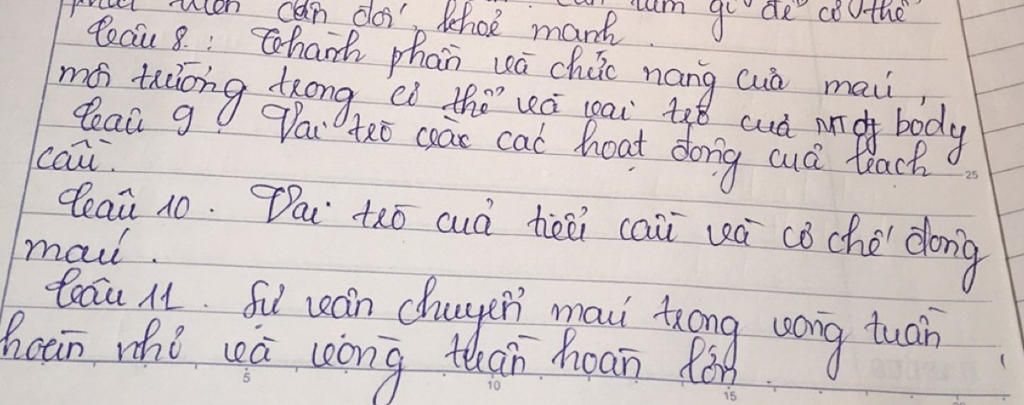 luôn cân đối, khoẻ mạnh. cần làm gì để có thể
Câu 8: Thành phần và chức năng của máu,
môi trường trong cơ thể và vai trò của MT of body
Câu 9: Vai trò các các hoạt động của bạch
cầu.
Câu 10. Vai trò của tiểu cầu và cơ chế đông
máu.
Câu 11. Sự vận chuyển máu trong vòng tuần
hoàn nhỏ và vòng tuần hoàn lớn.
25
5
10
15